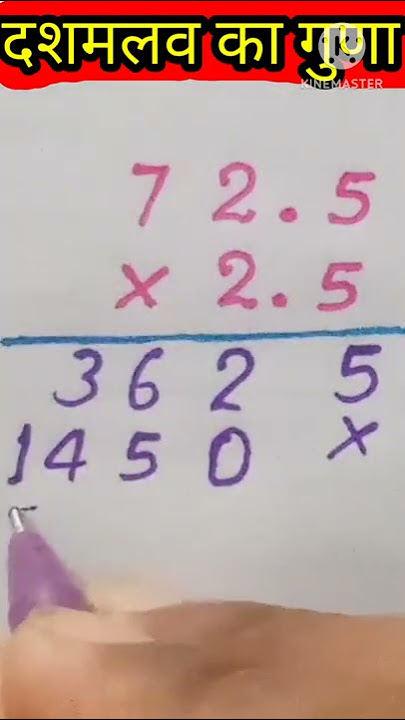 दशमलव का गुणा
KINEMASTER
7 2 . 5
x 2 . 5
3 6 2 5
1 4 5 0 x